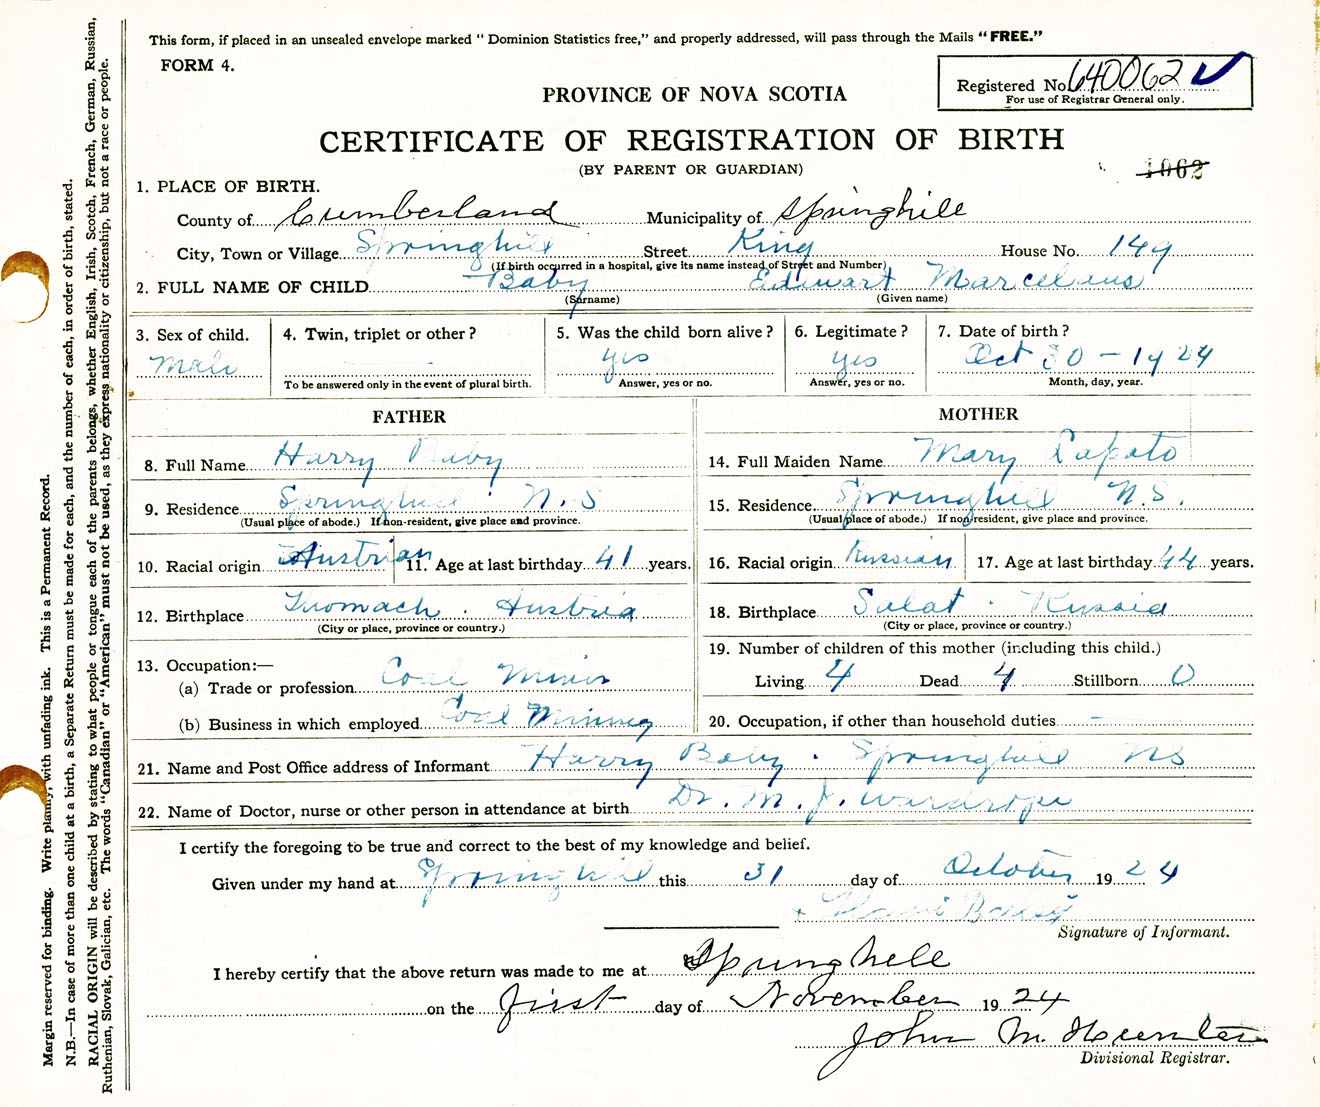 This form, if placed in an unsealed envelope marked " Dominion Statistics free," and properly addressed, will pass through the Mails "FREE."
FORM 4.
Registered No. 640062 ✓
For use of Registrar General only.
PROVINCE OF NOVA SCOTIA
CERTIFICATE OF REGISTRATION OF BIRTH
(BY PARENT OR GUARDIAN)
1062
1. PLACE OF BIRTH.
County of Cumberland Municipality of Springhill
City, Town or Village Springhill Street King House No. 149
(If birth occurred in a hospital, give its name instead of Street and Number)
2. FULL NAME OF CHILD Baby Edwart Marcelaus
(Surname) (Given name)
3. Sex of child. 4. Twin, triplet or other? 5. Was the child born alive? 6. Legitimate? 7. Date of birth?
Male — yes yes Oct 30 - 1924
To be answered only in the event of plural birth. Answer, yes or no. Answer, yes or no. Month, day, year.
FATHER MOTHER
8. Full Name Harry Baby 14. Full Maiden Name Mary Lapato
9. Residence Springhill . N.S 15. Residence Springhill N.S.
(Usual place of abode.) If non-resident, give place and province. (Usual place of abode.) If non-resident, give place and province.
10. Racial origin Austrian 11. Age at last birthday 41 years. 16. Racial origin Russian 17. Age at last birthday 44 years.
12. Birthplace Thomach . Austria 18. Birthplace Salat . Russia
(City or place, province or country.) (City or place, province or country.)
13. Occupation:— 19. Number of children of this mother (including this child.)
(a) Trade or profession Coal Miner Living 4 Dead 4 Stillborn 0
(b) Business in which employed Coal Mining 20. Occupation, if other than household duties -
21. Name and Post Office address of Informant Harry Baby . Springhill NS
22. Name of Doctor, nurse or other person in attendance at birth Dr. M. J. Wardrope
I certify the foregoing to be true and correct to the best of my knowledge and belief.
Given under my hand at Springhill this 31 day of October 1924
Signature of Informant.
I hereby certify that the above return was made to me at Springhill
on the first day of November 1924
John M. Hunter
Divisional Registrar.
Margin reserved for binding. Write plainly, with unfading ink. This is a Permanent Record.
N.B.—In case of more than one child at a birth, a Separate Return must be made for each, and the number of each, in order of birth, stated.
RACIAL ORIGIN will be described by stating to what people or tongue each of the parents belongs, whether English, Irish, Scotch, French, German, Russian,
Ruthenian, Slovak, Galician, etc. The words "Canadian" or "American" must not be used, as they express nationality or citizenship, but not a race or people.